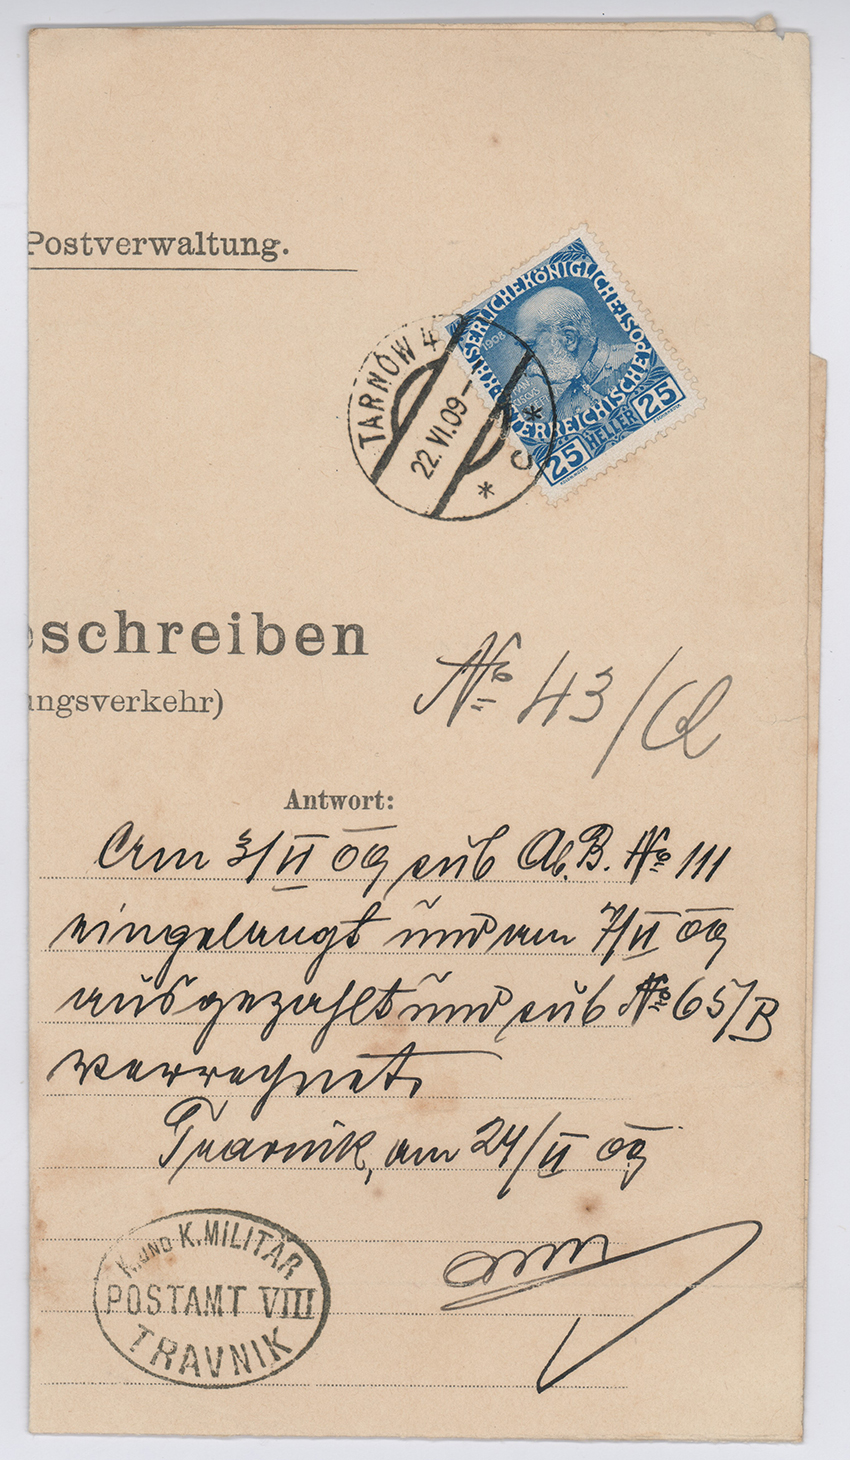 Postverwaltung.
KAISERLICHE KÖNIGLICHE ÖSTERREICHISCHE POST
1908
25 HELLER 25
TARNÓW 4
22.VI.09-
* C *
schreiben
ungsverkehr)
No 43/a
Antwort:
Am 3/II 09 sub Ab. B. No 111
eingelangt und am 7/II 09
ausgezahlt und sub No 65/B
verrechnet.
Travnik, am 24/II 09
K. UND K. MILITÄR
POSTAMT VIII
TRAVNIK